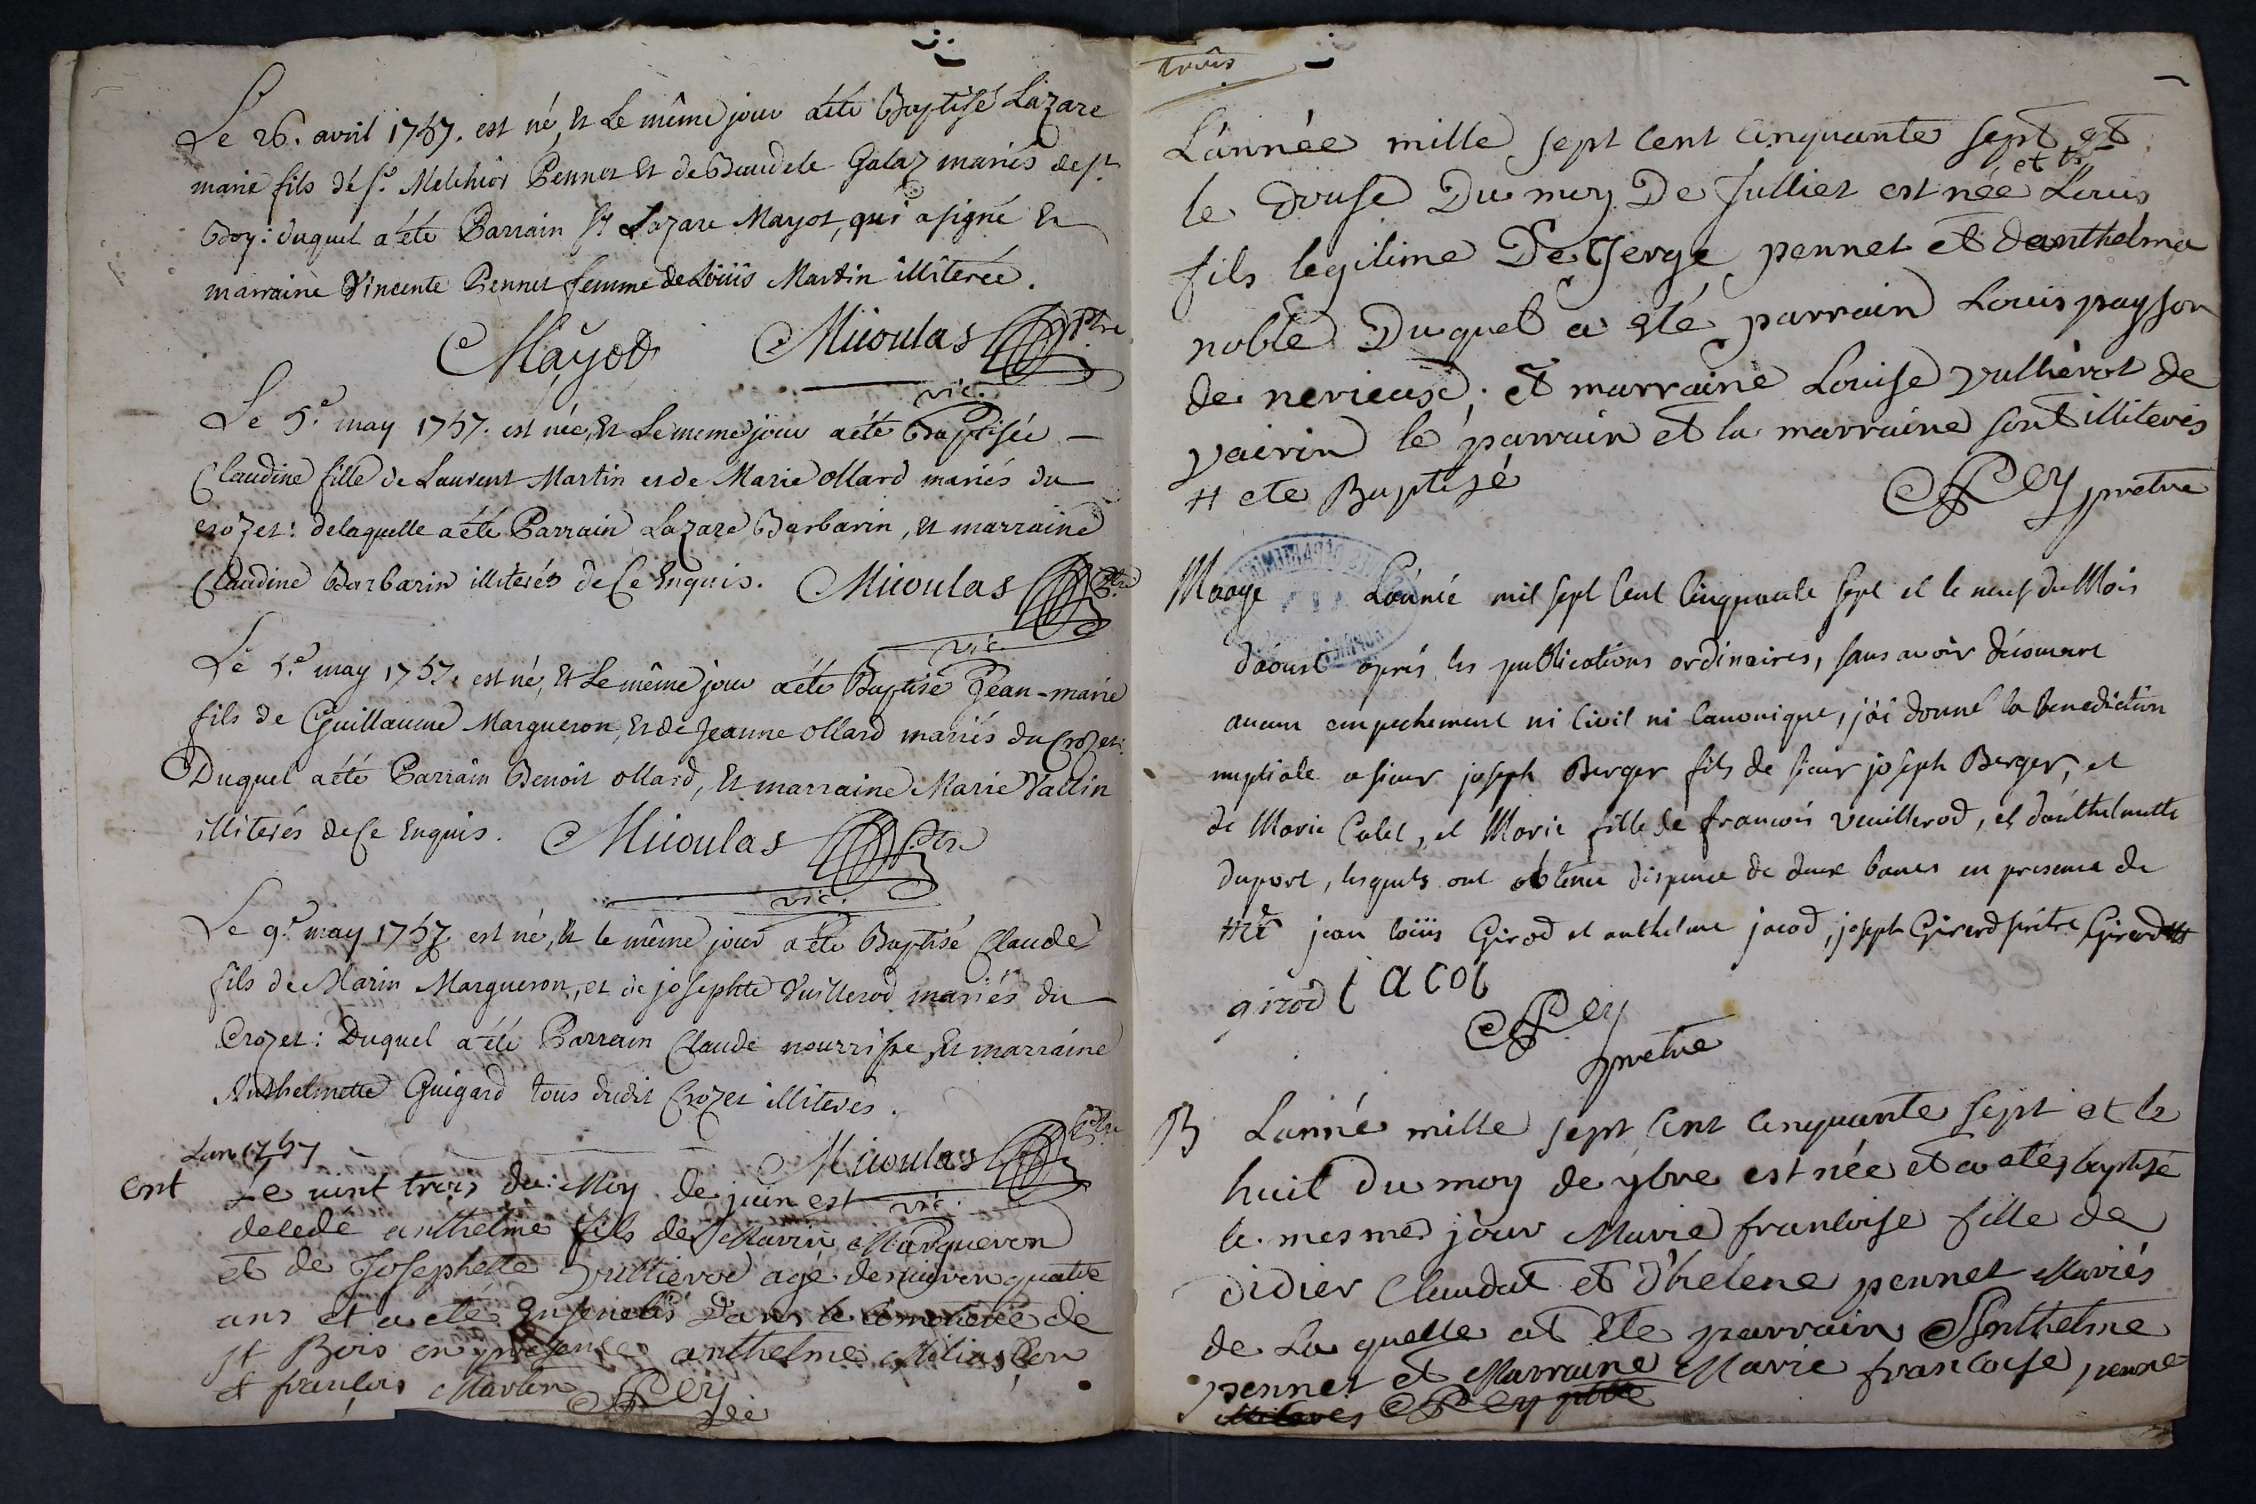 Le 26. avril 1757. est né, Et Le même jour a été Baptisé Lazare
marie fils de sr. Melchior Pennet Et de Baudele Galaz mariés de st.
Boy: duquel a été Parrain sr Lazare Mayot, qui a signé Et
marraine Vincente Pennet femme de Loüis Martin illiterée.
Mayot Micoulas Ptre
vic.
Le 5e. may 1757. est née, Et Le meme jour a été Baptisée —
Claudine fille de Laurent Martin et de Marie ollard mariés du
crozet: delaquelle a été Parrain Lazare Barbarin, Et marraine
Claudine Barbarin illiterés de Ce Enquis. Micoulas Ptre
vic.
Le 5e. may 1757. est né, Et Le même jour a été Baptisé Jean-marie
fils de Guillaume Margueron, Et de Jeanne ollard mariés du Crozet:
Duquel a été Parrain Benoit ollard, Et marraine Marie Vallin
illiterés de Ce Enquis. Micoulas Ptre
vic.
Le 9e. may 1757 est né, Et le même jour a été Baptisé Claude
fils de Marin Margueron, et de josephte Vuillerod mariés du —
Crozet: Duquel a été Parrain Claude nourrisse, Et marraine
Anthelmette Guigard tous dudit Crozet illiterés.
Lan 1757 Micoulas Ptre
vic.
ent Le vint trois du Moy de juin est
decedé anthelme fils de Marin Margueron
et de Josephette Vullierod agé denviron quatre
ans et a eté Ensevelis dans le cimetiere de
st Bois en presence anthelme Milias
et françois Martin Rey
vic
trois
L'année mille sept cent cinquante sept et
le douse Du moy De Julliet est née et Louis
fils legitime De Serge pennet et danthelma
noble Duquel a eté parrain Louis payson
de nerieux; et marraine Louise Vullierot de
vairin le parrain et la marraine sont illiterés
# ete Baptisé Rey prêtre
Maage L'année mil sept Cent Cinquante sept et le neuf du Mois
d'aoust aprés les publications ordinaires, sans avoir decouvert
aucun empechement ni Civil ni Canonique, j'ai donné la benediction
nuptiale a sieur joseph Berger fils de sieur joseph Berger, et
de Marie Calet, et Marie fille de francois Veuillerod, et d'anthelmette
duport, lesquels ont obtenu dispence de deux bancs en presence de
Mre jean loüis Girod et anthelme jacod, joseph Girerd prêtre Girerd
girod jacod
Rey
pretre
B Lanné mille sept Cent Cinquante sept et le
huit Du moy de 9bre est née et a eté baptisé
le mesme jour Marie francoise fille de
didier Claudat et d'helene pennet Mariés
de La quelle at Ete parrain Anthelme
pennet et Marraine Marie francoise penne
illiteres Rey ptre